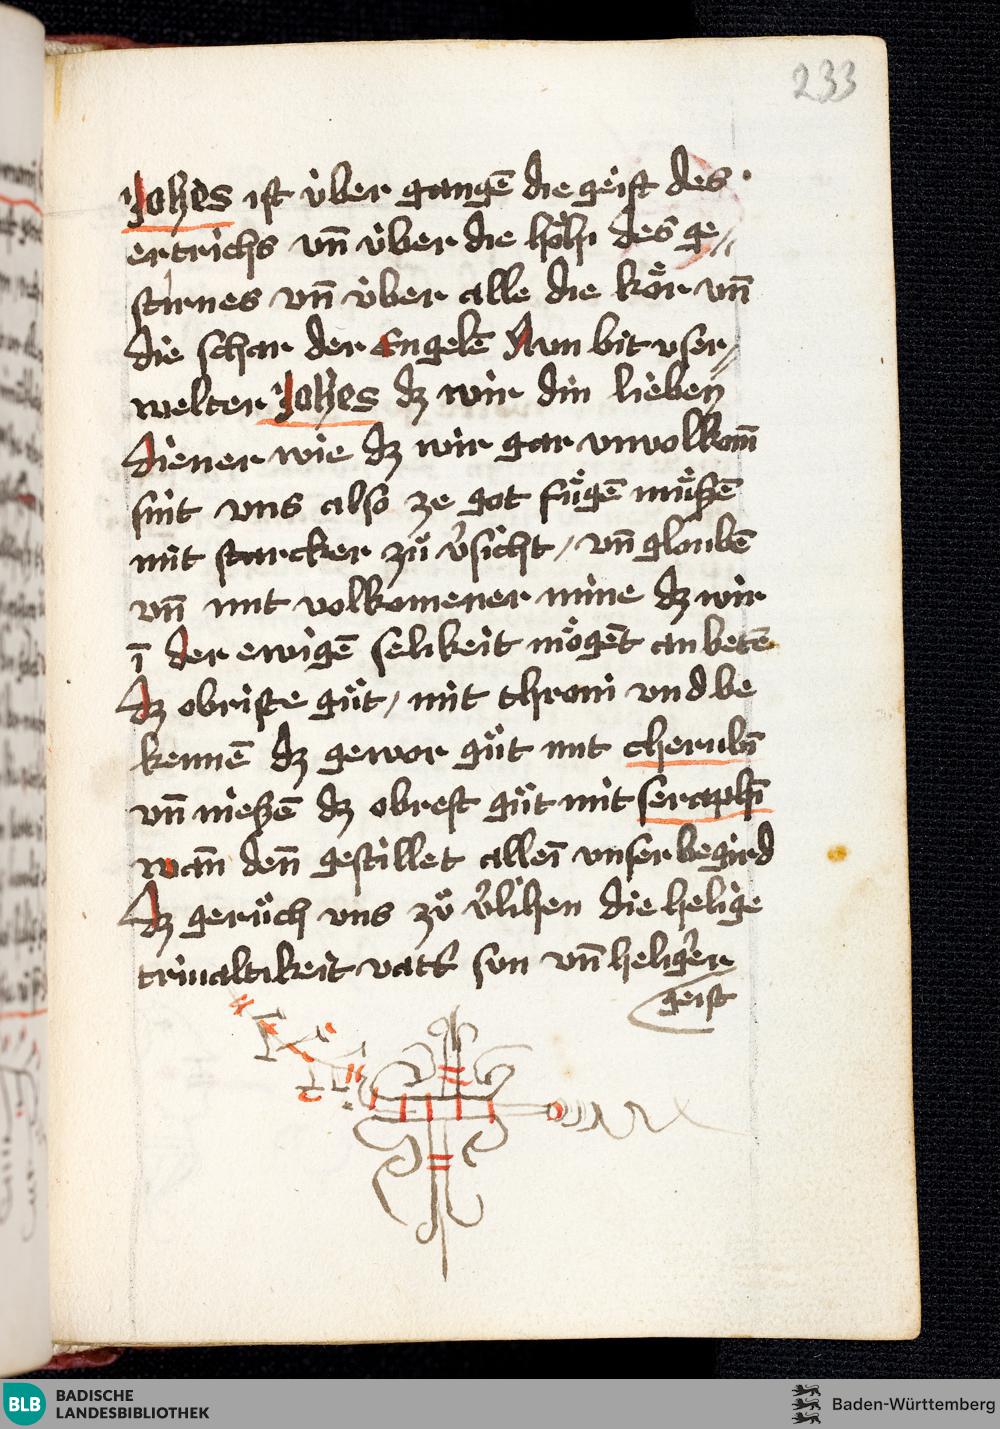 233
Johes ist über gangē die geist des
ertrichs vn̄ über die höhi des ge//
stirnes vn̄ über alle die kör vn̄
die schar der Engelē Nun bit vser//
welter Johes dz wir din lieben
diener wie dz wir gar vnvolkom̄
sint vns also ze got fügē müßē
mit starcker zů v̉sicht / vn̄ gloubē
vn̄ mit volkomener mine dz wir
ī der ewigē selikeit mögēt an betē
dz obriste gůt / mit throni vnd be
kennē dz gewor gůt mit cherubī
vn̄ nießē dz obrest gůt mit seraphī
wan̄ den̄ gestillet alleī vnser begird
dz gerůch vns zů v̉lihen die helige
trivaltikeit vatt̉ sun vn̄ heliger
geist
BLB BADISCHE
LANDESBIBLIOTHEK
Baden-Württemberg